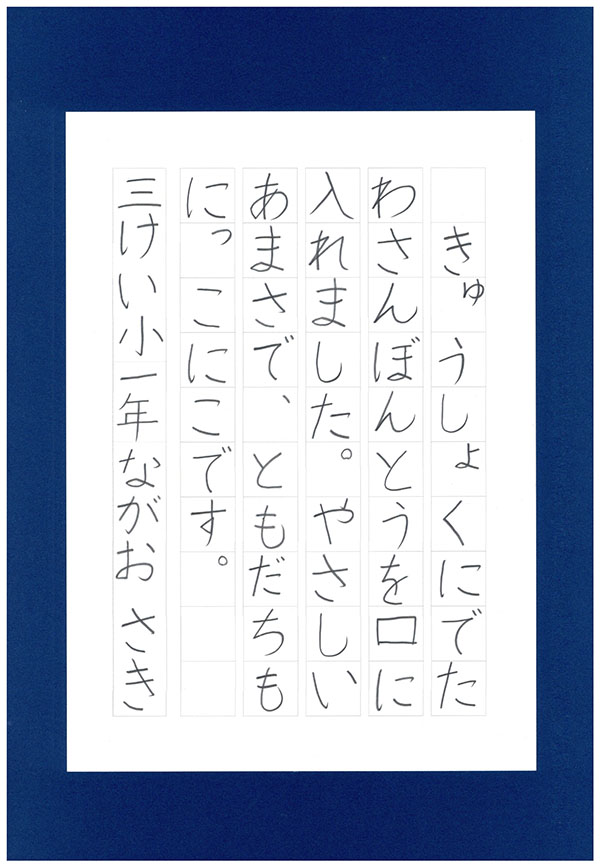 きゅうしょくにでた
わさんぼんとうを口に
入れました。やさしい
あまさで、ともだちも
にっこにこです。
三けい小一年ながお さき